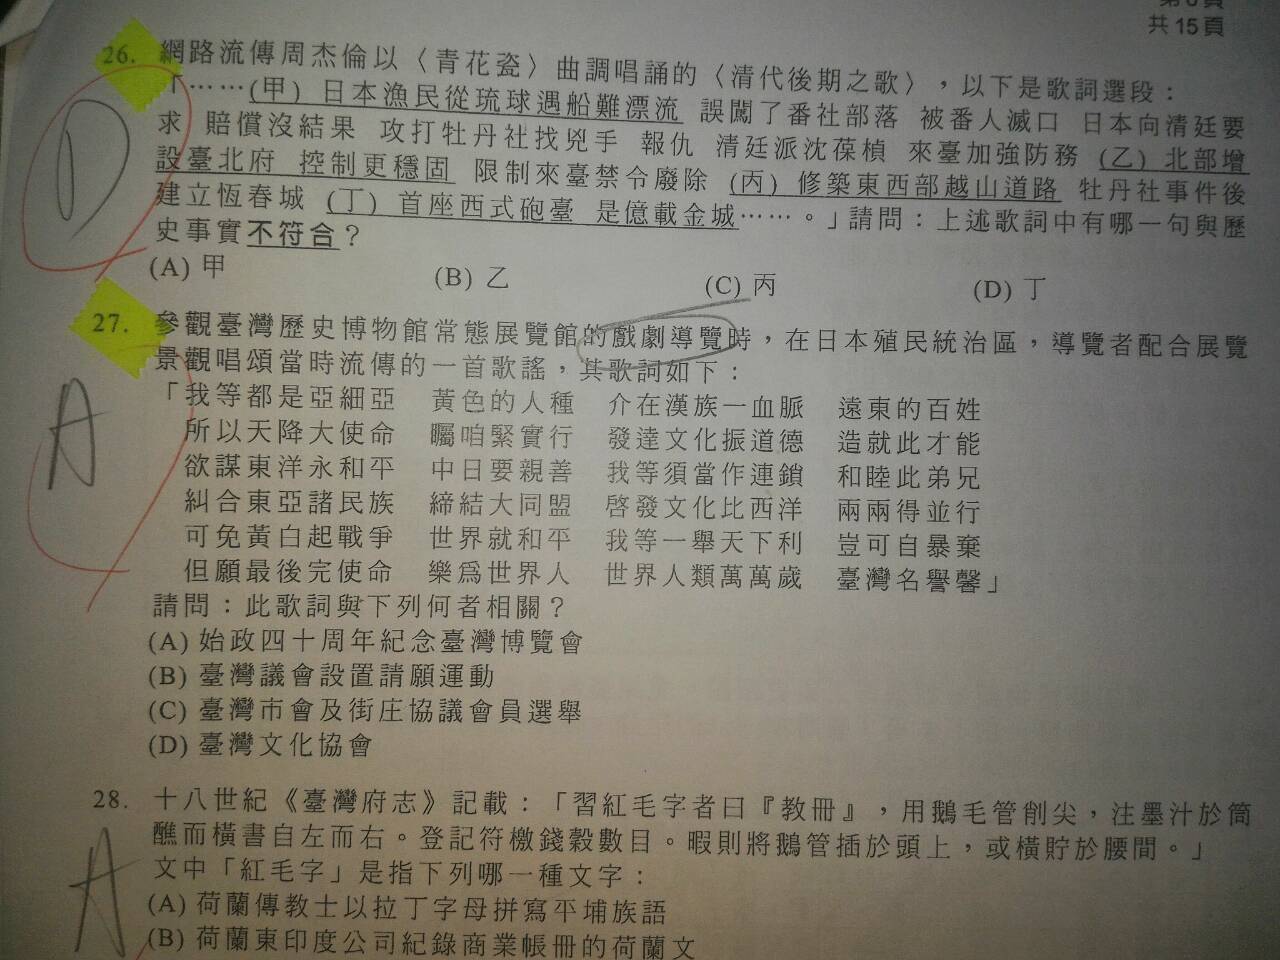 共15頁
26. 網路流傳周杰倫以〈青花瓷〉曲調唱誦的〈清代後期之歌〉，以下是歌詞選段：
「……(甲) 日本漁民從琉球遇船難漂流 誤闖了番社部落 被番人滅口 日本向清廷要
求 賠償沒結果 攻打牡丹社找兇手 報仇 清廷派沈葆楨 來臺加強防務 (乙) 北部增
設臺北府 控制更穩固 限制來臺禁令廢除 (丙) 修築東西部越山道路 牡丹社事件後
建立恆春城 (丁) 首座西式砲臺 是億載金城……。」請問：上述歌詞中有哪一句與歷
史事實不符合？
(A) 甲 (B) 乙 (C) 丙 (D) 丁
D
27. 參觀臺灣歷史博物館常態展覽館的戲劇導覽時，在日本殖民統治區，導覽者配合展覽
景觀唱頌當時流傳的一首歌謠，其歌詞如下：
「我等都是亞細亞 黃色的人種 介在漢族一血脈 遠東的百姓
所以天降大使命 囑咱緊實行 發達文化振道德 造就此才能
欲謀東洋永和平 中日要親善 我等須當作連鎖 和睦此弟兄
糾合東亞諸民族 締結大同盟 啓發文化比西洋 兩兩得並行
可免黃白起戰爭 世界就和平 我等一舉天下利 豈可自暴棄
但願最後完使命 樂為世界人 世界人類萬萬歲 臺灣名譽馨」
請問：此歌詞與下列何者相關？
(A) 始政四十周年紀念臺灣博覽會
(B) 臺灣議會設置請願運動
(C) 臺灣市會及街庄協議會員選舉
(D) 臺灣文化協會
A
28. 十八世紀《臺灣府志》記載：「習紅毛字者曰『教冊』，用鵝毛管削尖，注墨汁於筒
醮而橫書自左而右。登記符檄錢穀數目。暇則將鵝管插於頭上，或橫貯於腰間。」
文中「紅毛字」是指下列哪一種文字：
(A) 荷蘭傳教士以拉丁字母拼寫平埔族語
(B) 荷蘭東印度公司紀錄商業帳冊的荷蘭文
A